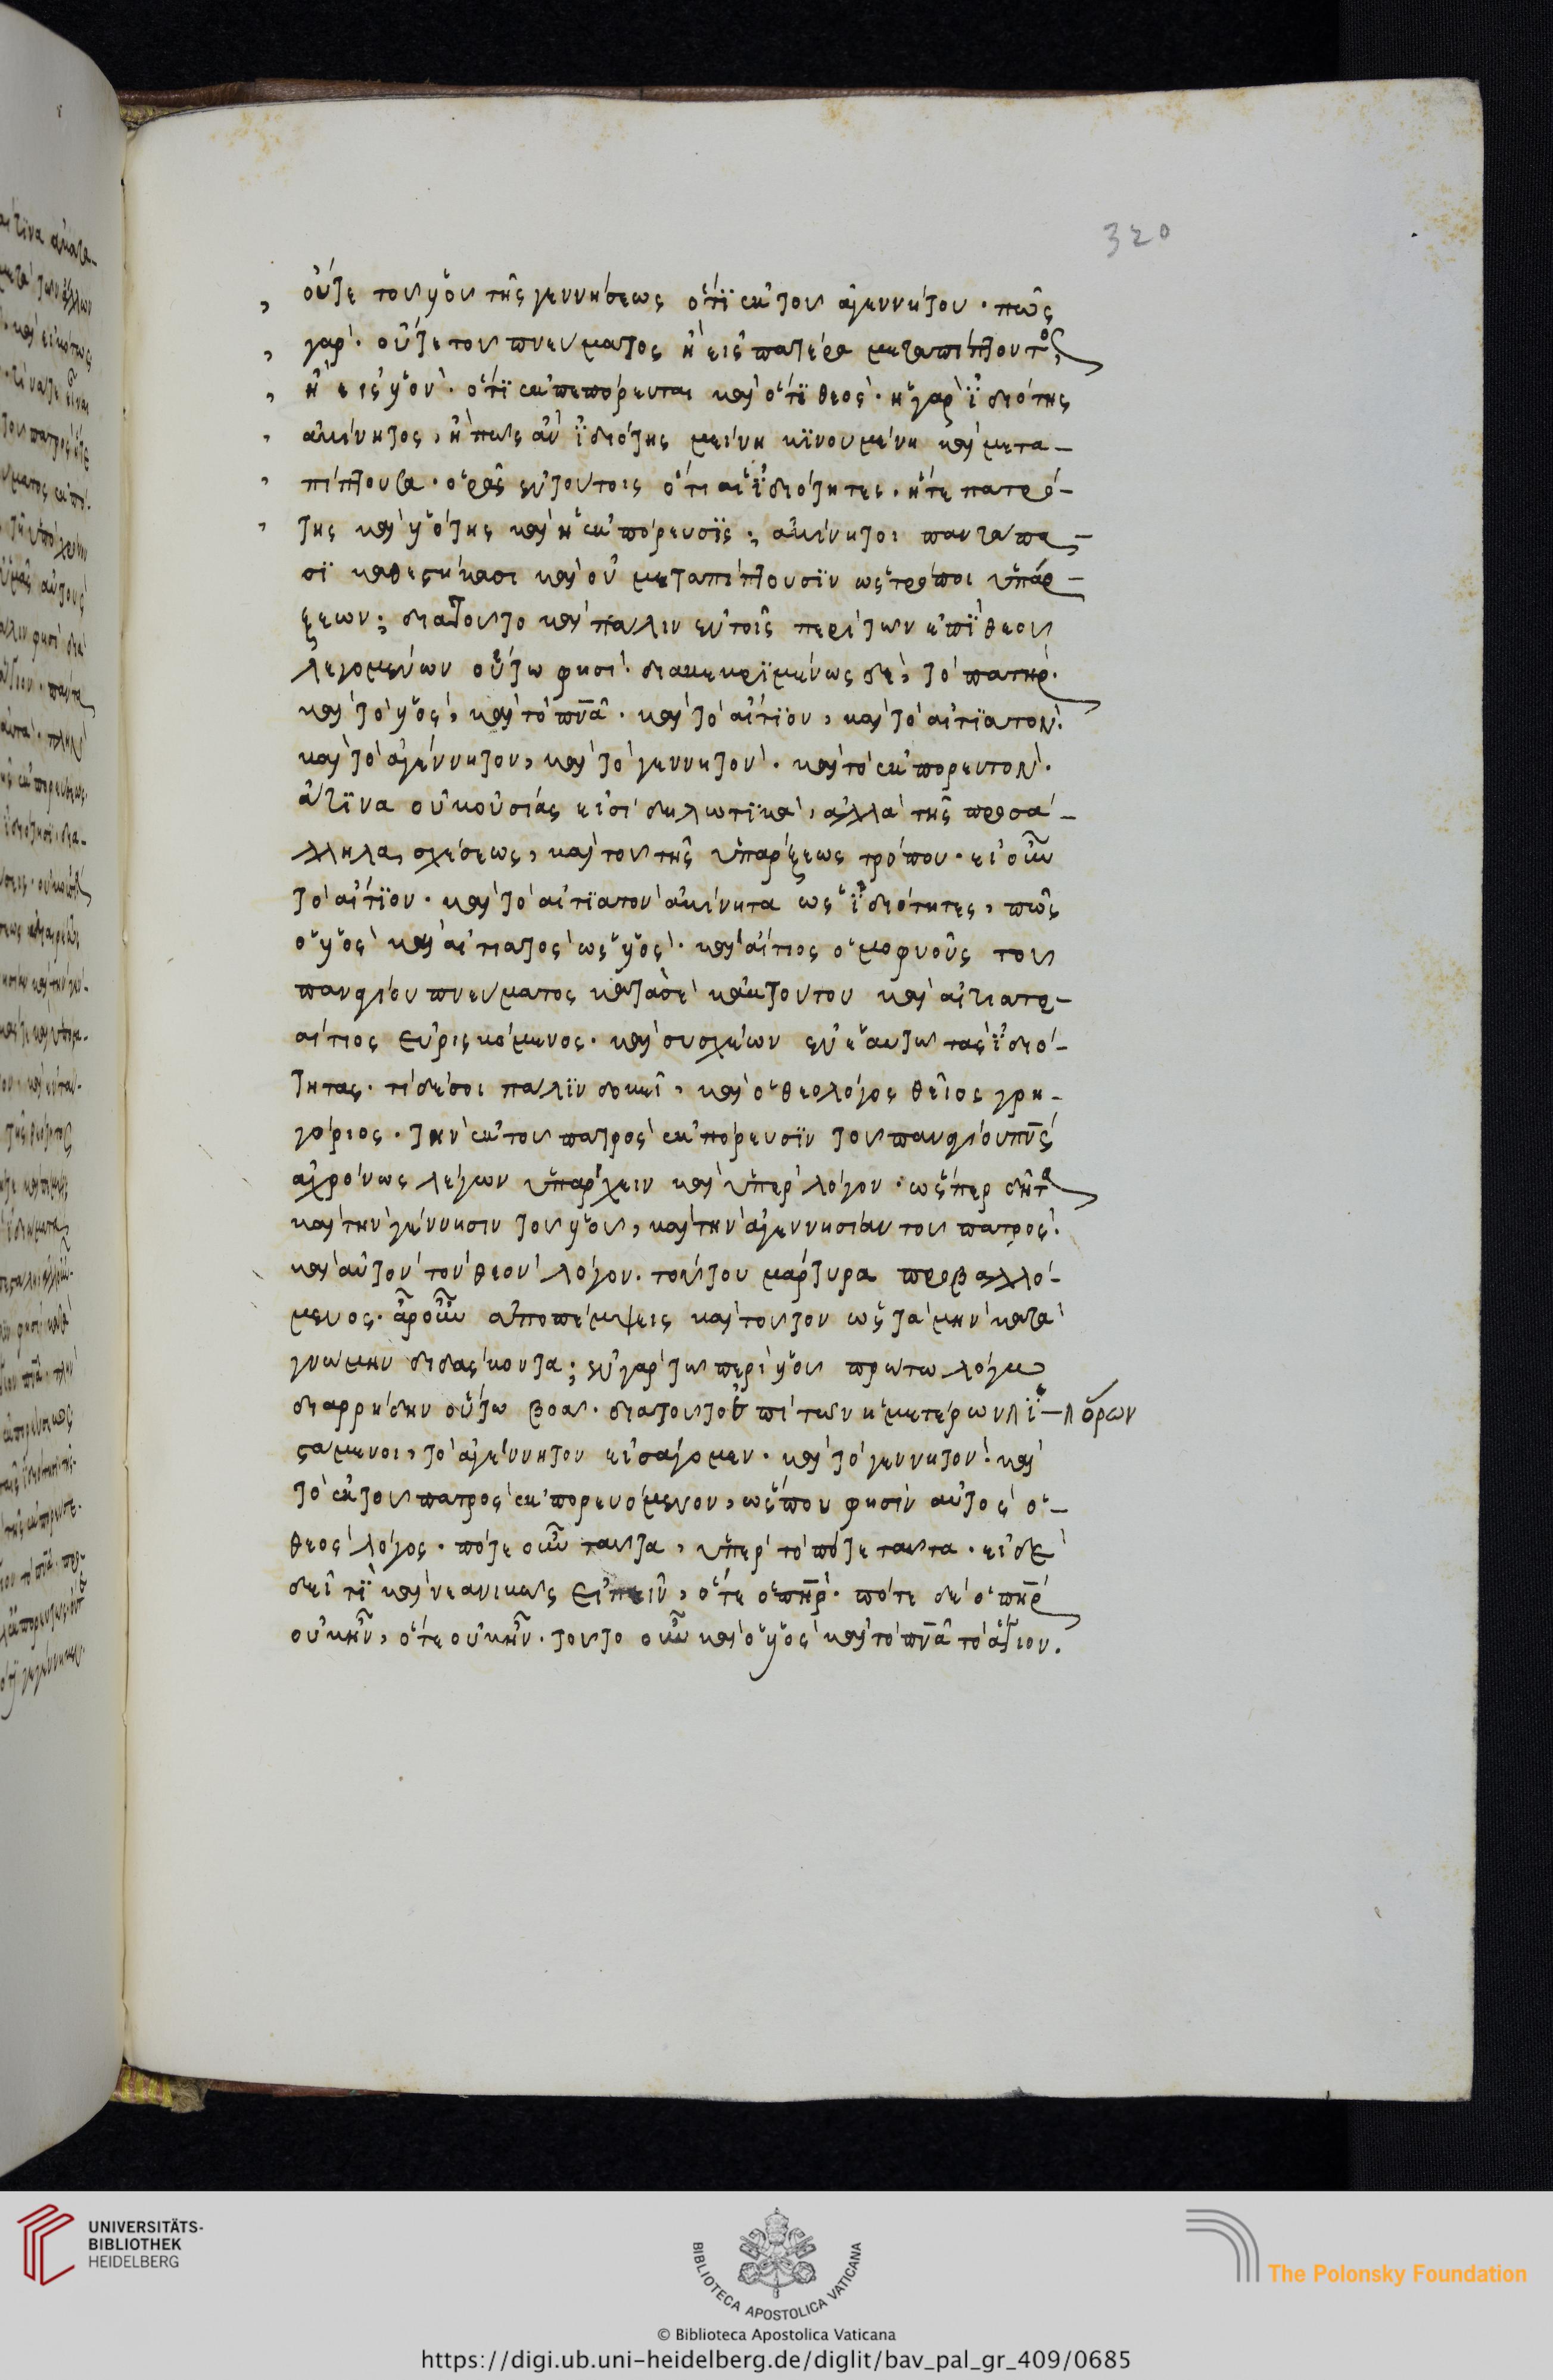 320
οὔτε του υἱου τῆς γεννήσεως ὅτι ἐκ του ἀγεννήτου · πῶς
γαρ · οὔτε του πνευματος ἢ εἰς πατέρα μεταπίπτοντος,
ἢ εἰς υἱὸν · ὅτι ἐκπεπόρευται καὶ ὅτι θεὸς · ἡ γὰρ ἰδιότης
ακίνητος, ἢ πως ἂν ἰδιότης μείνη κινουμένη καὶ μετα-
πίπτουσα · ὁρᾶς ἐν τουτοις ὅτι αἱ ἰδιότητες · ἥτε πατρό-
της καὶ υἱότης καὶ ἡ ἐκπόρευσις ; ακίνητοι πανταπα-
σι καθεστήκασι καὶ οὐ μεταπίπτουσιν ὡς τρόποι ὑπάρ-
ξεων ; διατουτο καὶ παλιν ἐν τοῖς περὶ των ἐπὶ θεου
λεγομένων οὕτω φησὶ · διακεκριμένως δὲ, τὸ πατηρ ·
καὶ τὸ υἱὸς, καὶ τὸ πνα · καὶ τὸ αἴτιον, καὶ τὸ αἰτιατον ·
καὶ τὸ ἀγέννητον, καὶ τὸ γεννητον · καὶ τὸ ἐκπορευτον ·
ἅτινα οὐκ οὐσίας εἰσὶ δηλωτικὰ, αλλὰ τῆς προσά-
λληλα σχέσεως, καὶ του τῆς ὑπαρξεως τρόπου · εἰ οὖν
τὸ αἴτιον · καὶ τὸ αἰτιατον ακίνητα ὡς ἰδιότητες, πῶς
ὁ υἱὸς καὶ αἰτιατος ὡς υἱὸς · καὶ αἴτιος ὁμοφυοῦς του
παναγίου πνευματος κατασὲ κακτουτου καὶ αἰτιατο-
αίτιος ευρισκόμενος · καὶ συσχέων ἐν ἑαυτω τας ἰδιό-
τητας · τί δέ σοι παλιν δοκεῖ, καὶ ὁ θεολόγος θεῖος γρη-
γόριος · την ἐκ του πατρὸς ἐκπόρευσιν του παναγίου πνς
αχρόνως λέγων ὑπαρχειν καὶ ὑπερ λόγον · ὥσπερ δῆτα
καὶ την γέννησιν του υἱου, καὶ την ἀγεννησίαν του πατρος ·
καὶ αυτὸν τὸν θεον λόγον · τούτου μάρτυρα προβαλλό-
μενος · ἆρ οὖν αποπέμψεις καὶ τουτον ὡς τὰ μὴν κατὰ
γνωμην διδασκοντα ; ἐν γαρ τω περὶ υἱου πρωτω λόγω
διαρρήδην οὕτω βοαν · διατουτο ἐπὶ των ἡμετέρων ἱ- ὅρων
σταμενοι, τὸ ἀγέννητον εἰσαγομεν · καὶ τὸ γεννητον · καὶ
τὸ ἐκ του πατρος ἐκπορευόμενον, ὥς που φησὶν αὐτος ὁ-
θεος λόγος · πότε οὖν ταυτα, ὑπερ τὸ πότε ταυτα · εἰ δὲ
δεῖ τι καὶ νεανικως εἰπεῖν, ὅτε ὁ πηρ · πότε δὲ ὁ πηρ
οὐκ ἦν, ὅτε οὐκ ἦν · τουτο οὖν καὶ ὁ υἱος καὶ τὸ πνα τὸ ἅγιον.
UNIVERSITÄTS-
BIBLIOTHEK
HEIDELBERG
BIBLIOTECA APOSTOLICA VATICANA
The Polonsky Foundation
© Biblioteca Apostolica Vaticana
https://digi.ub.uni-heidelberg.de/diglit/bav_pal_gr_409/0685